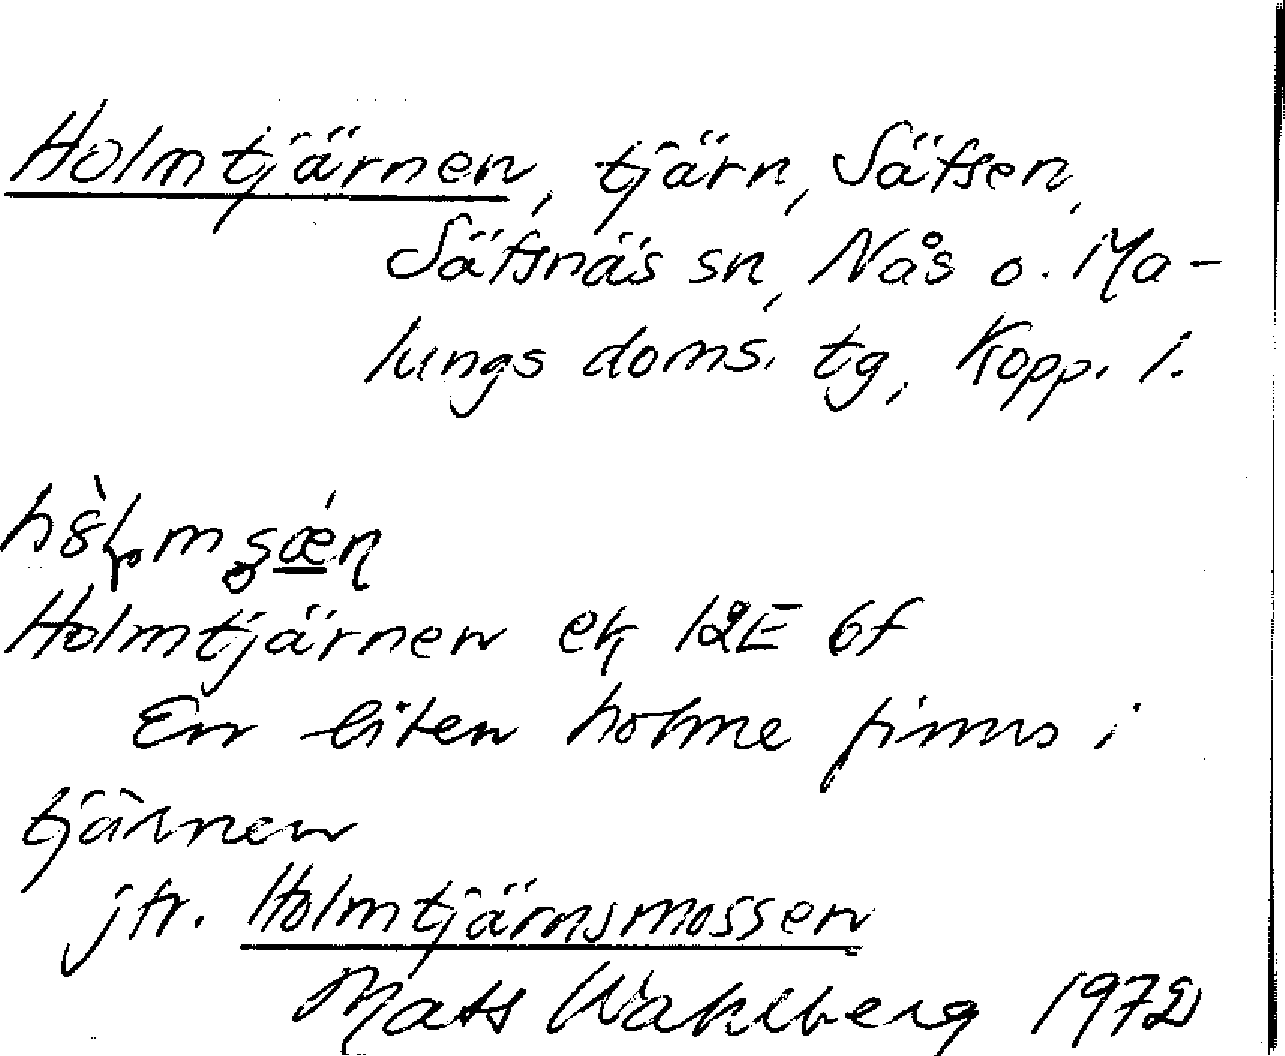 Holmtjärnen, tjärn, Säfsen,
Säfsnäs sn, Nås o. Ma-
lungs doms. tg, Kopp. l.
Holmtjärnen ek 12E 6f
En liten holme finns i
tjärnen
jfr. Holmtjärnsmossen
Mats Wahlberg 1972